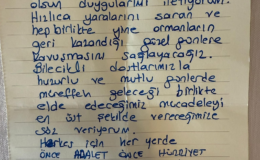 olsun duygularımı iletiyorum.
Hızlıca yaralarını saran ve
hep birlikte yine ormanların
geri kazandığı güzel günlere
kavuşmasını sağlayacağız.
Bilecikli dostlarımızla
huzurlu ve mutlu günlerde
müreffeh geleceği birlikte
elde edeceğimiz mücadeleyi
en üst şekilde vereceğimize
söz veriyorum.
Herkes için her yerde
ÖNCE ADALET ÖNCE HÜRRİYET